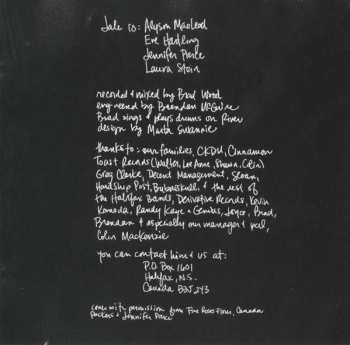 Jale is: Alyson MacLeod
Eve Hartling
Jennifer Pierce
Laura Stein
recorded & mixed by Brad Wood
engineered by Brendan McGuire
Brad sings & plays drums on River
design by
thanks to: our families, CKDU, Cinnamon
Toast Records (Walter, Lee Anne, Shawn, Colin)
Greg Clarke, Decent Management, Sloan,
Hardship Post, Bubaiskull, & the rest of
the Halifax Bands, Derivative Records, Kevin
Komoda, Randy Kaye & Genius, Joyce, Brad,
Brendan & especially our manager & pal,
Colin MacKenzie
you can contact him & us at:
P.O. Box 1601
Halifax, N.S.
Canada B3J 2Y3
cover with permission from Five Roses Flour, Canada
& Jennifer Pierce